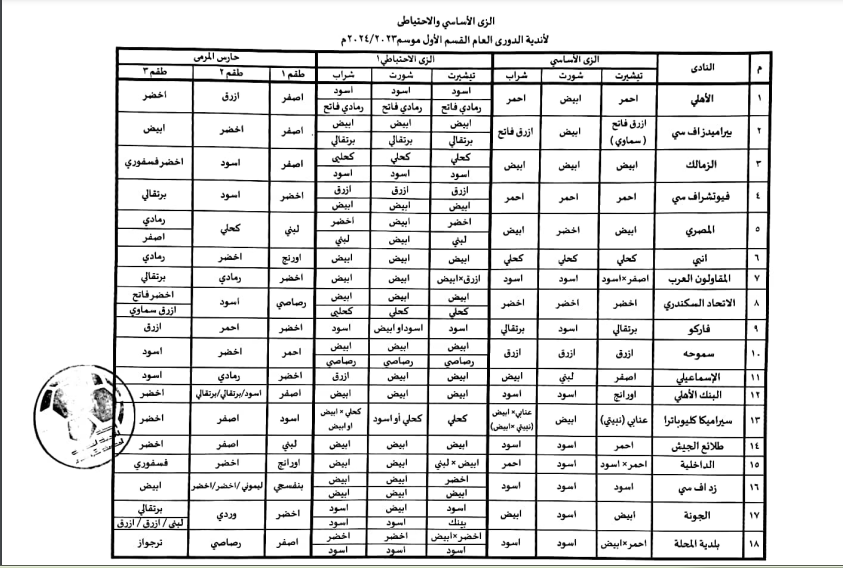 الزى الأساسي والاحتياطى
لأندية الدورى العام القسم الأول موسم ٢٠٢٤/٢٠٢٣م
م النادى الزى الأساسي الزى الاحتياطي١ حارس المرمى
تيشيرت شورت شراب تيشيرت شورت شراب طقم ١ طقم ٢ طقم ٣
١ الأهلي احمر ابيض احمر اسود اسود اسود اصفر ازرق اخضر
رمادي فاتح رمادي فاتح رمادي فاتح
٢ بيراميدز اف سي ازرق فاتح (سماوي) ابيض ازرق فاتح ابيض ابيض ابيض اصفر اخضر ابيض
برتقالي برتقالي برتقالي
٣ الزمالك ابيض ابيض ابيض كحلي كحلي كحلبى اصفر اسود اخضر فسفوري
اسود اسود اسود
٤ فيوتشراف سي احمر احمر احمر ازرق ازرق ازرق اخضر اسود برتقالي
ابيض ابيض ابيض
٥ المصري ابيض اخضر ابيض اخضر ابيض اخضر لبني كحلي رمادي
لبني ابيض لبني اصفر
٦ انبي كحلي كحلي كحلي ابيض ابيض ابيض اورنج اخضر رمادي
٧ المقاولون العرب اصفر×اسود اسود اسود ازرق×ابيض ابيض ابيض اخضر رمادي برتقالي
٨ الاتحاد السكندري اخضر اخضر اخضر ابيض ابيض ابيض رصاصي اسود اخضر فاتح
كحلي كحلي كحلبى ازرق سماوي
٩ فاركو برتقالي اسود برتقالي اسود اسود او ابيض اسود اخضر احمر ازرق
١٠ سموحه ازرق ازرق ازرق ابيض ابيض ابيض احمر اخضر اسود
رصاصي رصاصي رصاصي
١١ الإسماعيلي اصفر لبني ابيض ابيض ابيض ازرق اخضر رمادي اسود
١٢ البنك الأهلي اورانج اسود اسود ابيض ابيض ابيض اصفر اسود/برتقالي/برتقالي اخضر
١٣ سيراميكا كليوباترا عنابي (نبيتي) ابيض عنابي×ابيض (نبيتي×ابيض) كحلي كحلي أو اسود كحلي × ابيض او ابيض اسود اصفر اخضر
١٤ طلائع الجيش احمر اسود اسود ابيض ابيض ابيض لبني اصفر اخضر
١٥ الداخلية احمر× اسود اسود احمر ابيض × لبني ابيض ابيض اورانج اخضر فسفوري
١٦ زد اف سي اسود اسود اسود اخضر ابيض ابيض بنفسجي ليموني/اخضر/اخضر ابيض
ابيض ابيض ابيض
١٧ الجونة ابيض اسود ابيض اسود ابيض اسود اخضر وردي برتقالي
بينك اسود اسود لبنى / ازرق / ازرق
١٨ بلدية المحلة احمر×ابيض اسود اسود اخضر×ابيض اخضر اخضر اصفر رصاصي ترجواز
اسود اسود اسود